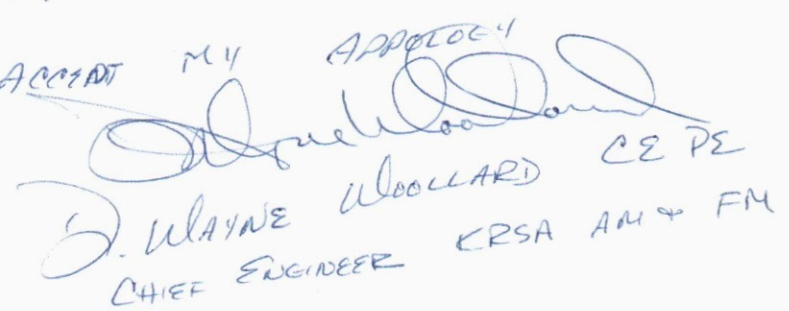 ACCEPT MY APPOLOGY
D. Wayne Woollard
D. WAYNE WOOLLARD CE PE
CHIEF ENGINEER KRSA AM & FM